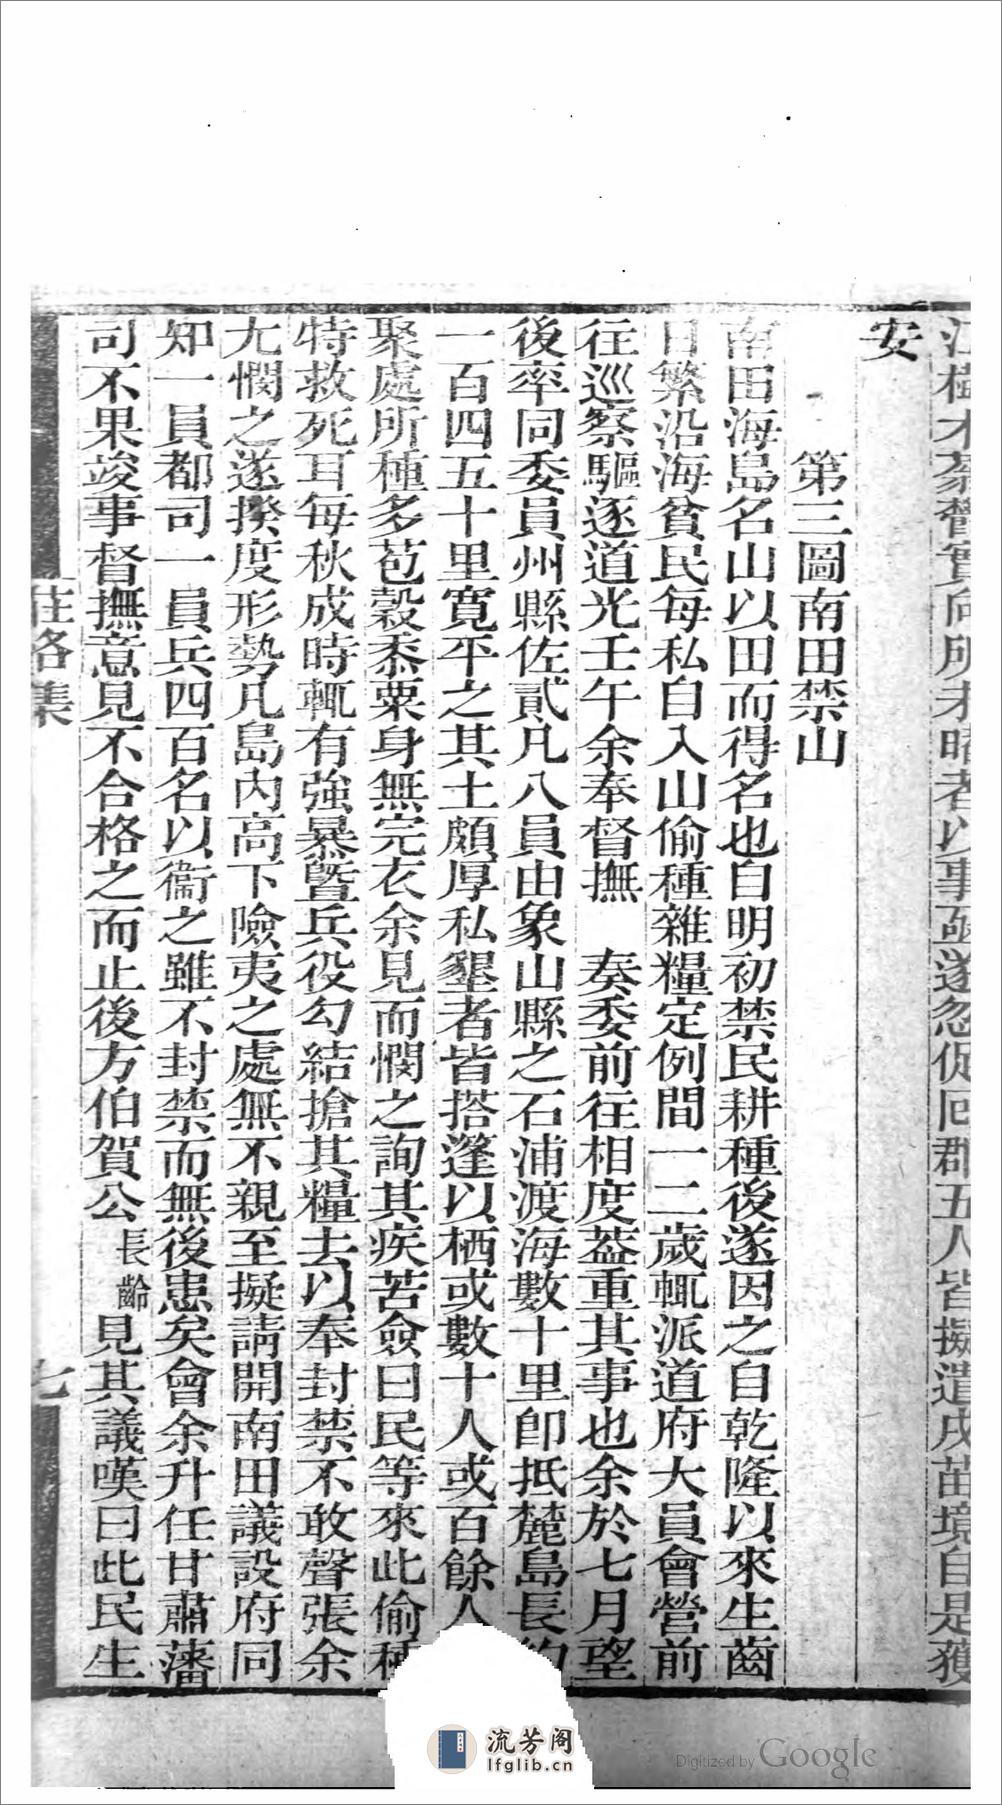 江樹木叅營實向所未暗者以事亟遂忽促囘郡五人皆擬遣戍苗境自是獲
安
第三圖南田禁山
南田海島名山以田而得名也自明初禁民耕種後遂因之自乾隆以來生齒
日繁沿海貧民每私自入山偷種雜糧定例間一二歲輒派道府大員會營前
往巡察驅逐道光壬午余奉督撫　奏委前往相度葢重其事也余於七月望
後率同委員州縣佐貳凡八員由象山縣之石浦渡海數十里卽抵麓島長約
一百四五十里寬平之其土頗厚私墾者皆搭蓬以栖或數十人或百餘人
聚處所種多苞穀黍粟身無完衣余見而憫之詢其疾苦僉曰民等來此偷種
特救死耳每秋成時輒有強暴曁兵役勾結搶其糧去以奉封禁不敢聲張余
尤憫之遂揆度形勢凡島內高下險夷之處無不親至擬請開南田議設府同
知一員都司一員兵四百名以衞之雖不封禁而無後患矣會余升任甘肅藩
司不果竣事督撫意見不合格之而止後方伯賀公長齡見其議嘆曰此民生
莊洛集
七
流芳阁
lfglib.cn
Digitized by Google